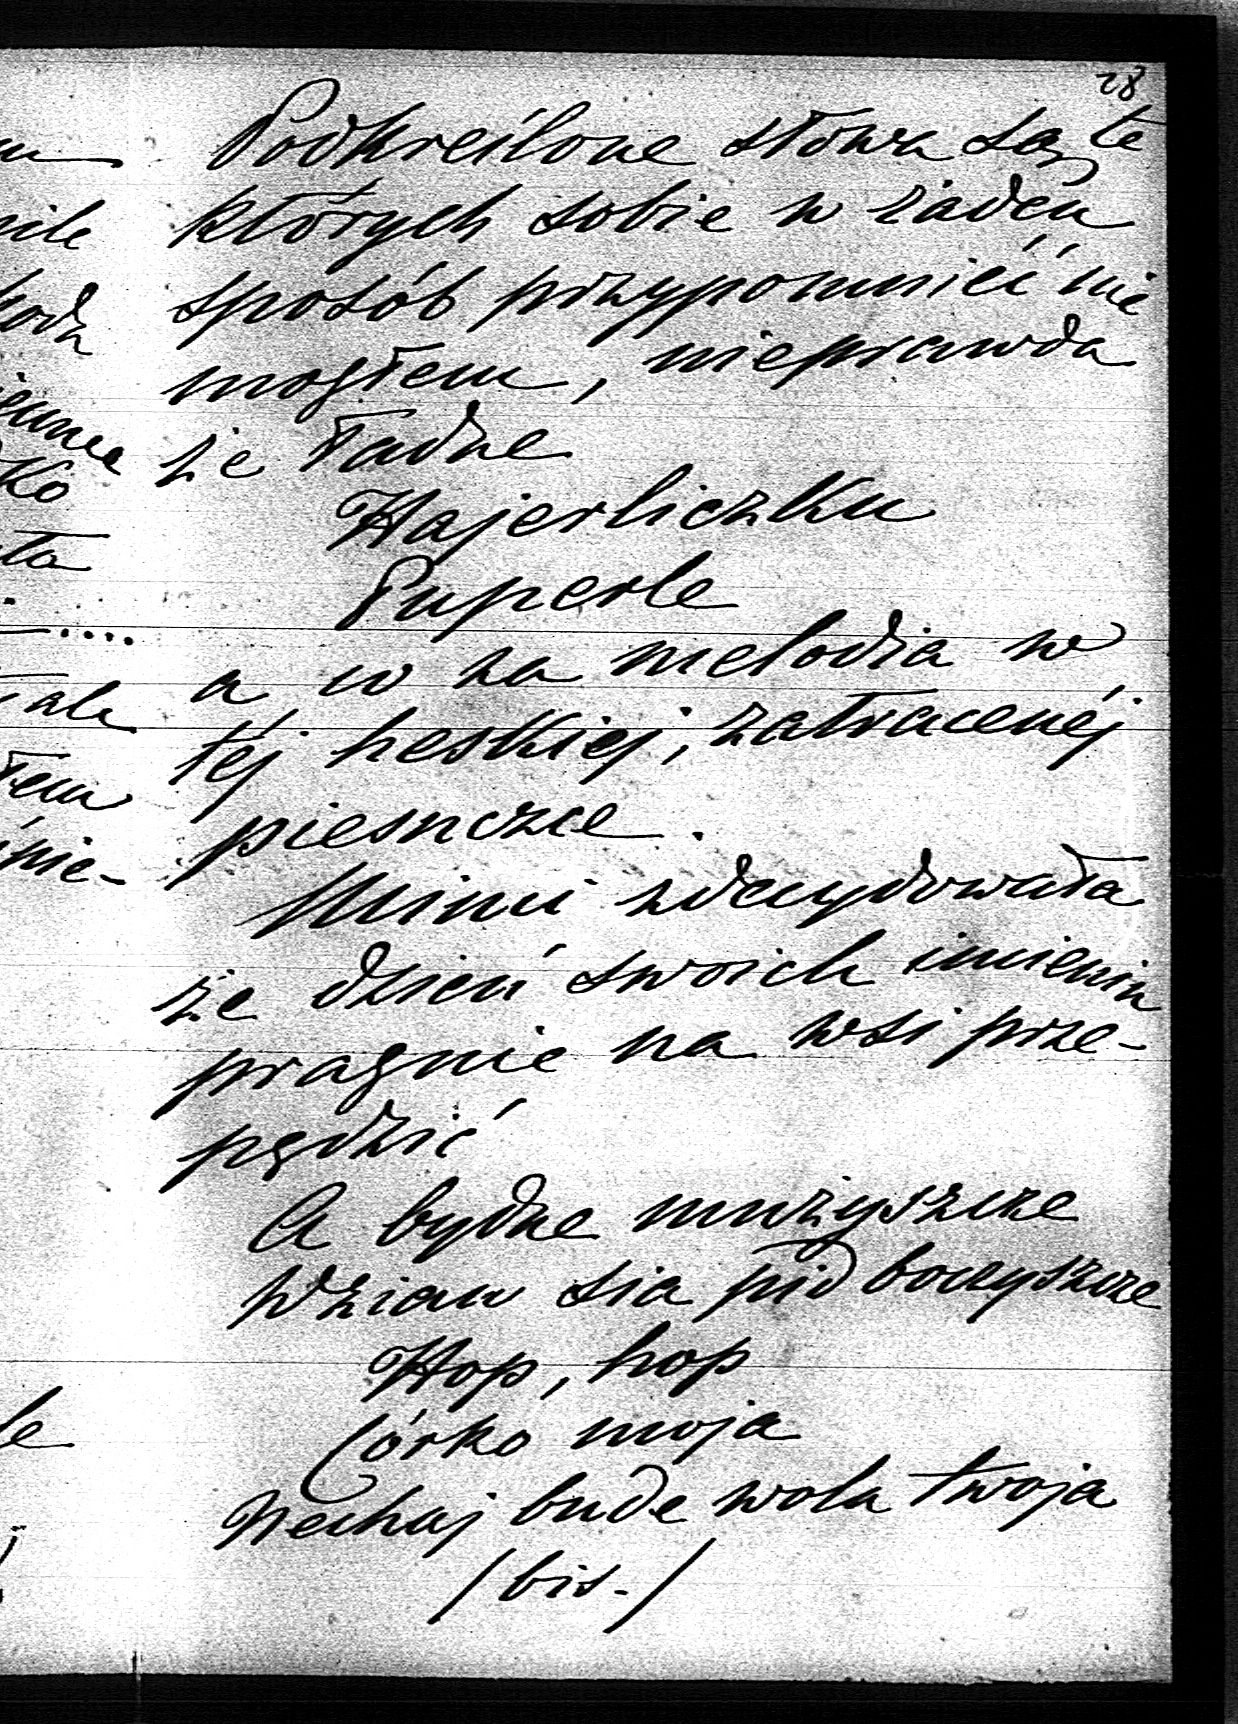 28
Podkreślone słowa są te
których sobie w żaden
sposób przypomnieć nie
mogłem, nieprawda
że ładne
Hajerliczku
Puperle
a co za melodia w
téj heskiej, zatracenéj
piesnczce.
Mimi zdecydowała
że dzień swoich imienin
pragnie na wsi prze-
pędzić
A bydne mużyszcze
Wziaw sia pid boczyszcze
Hop, hop
Córko moja
Nechaj bude wola twoja
/bis./